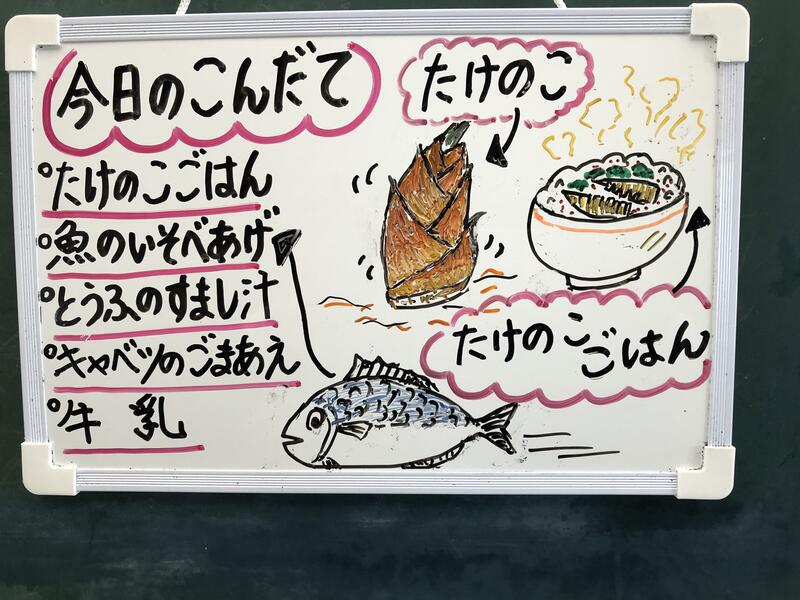 今日のこんだて
°たけのこごはん
°魚のいそべあげ
°とうふのすまし汁
°キャベツのごまあえ
°牛乳
たけのこ
たけのこ
ごはん